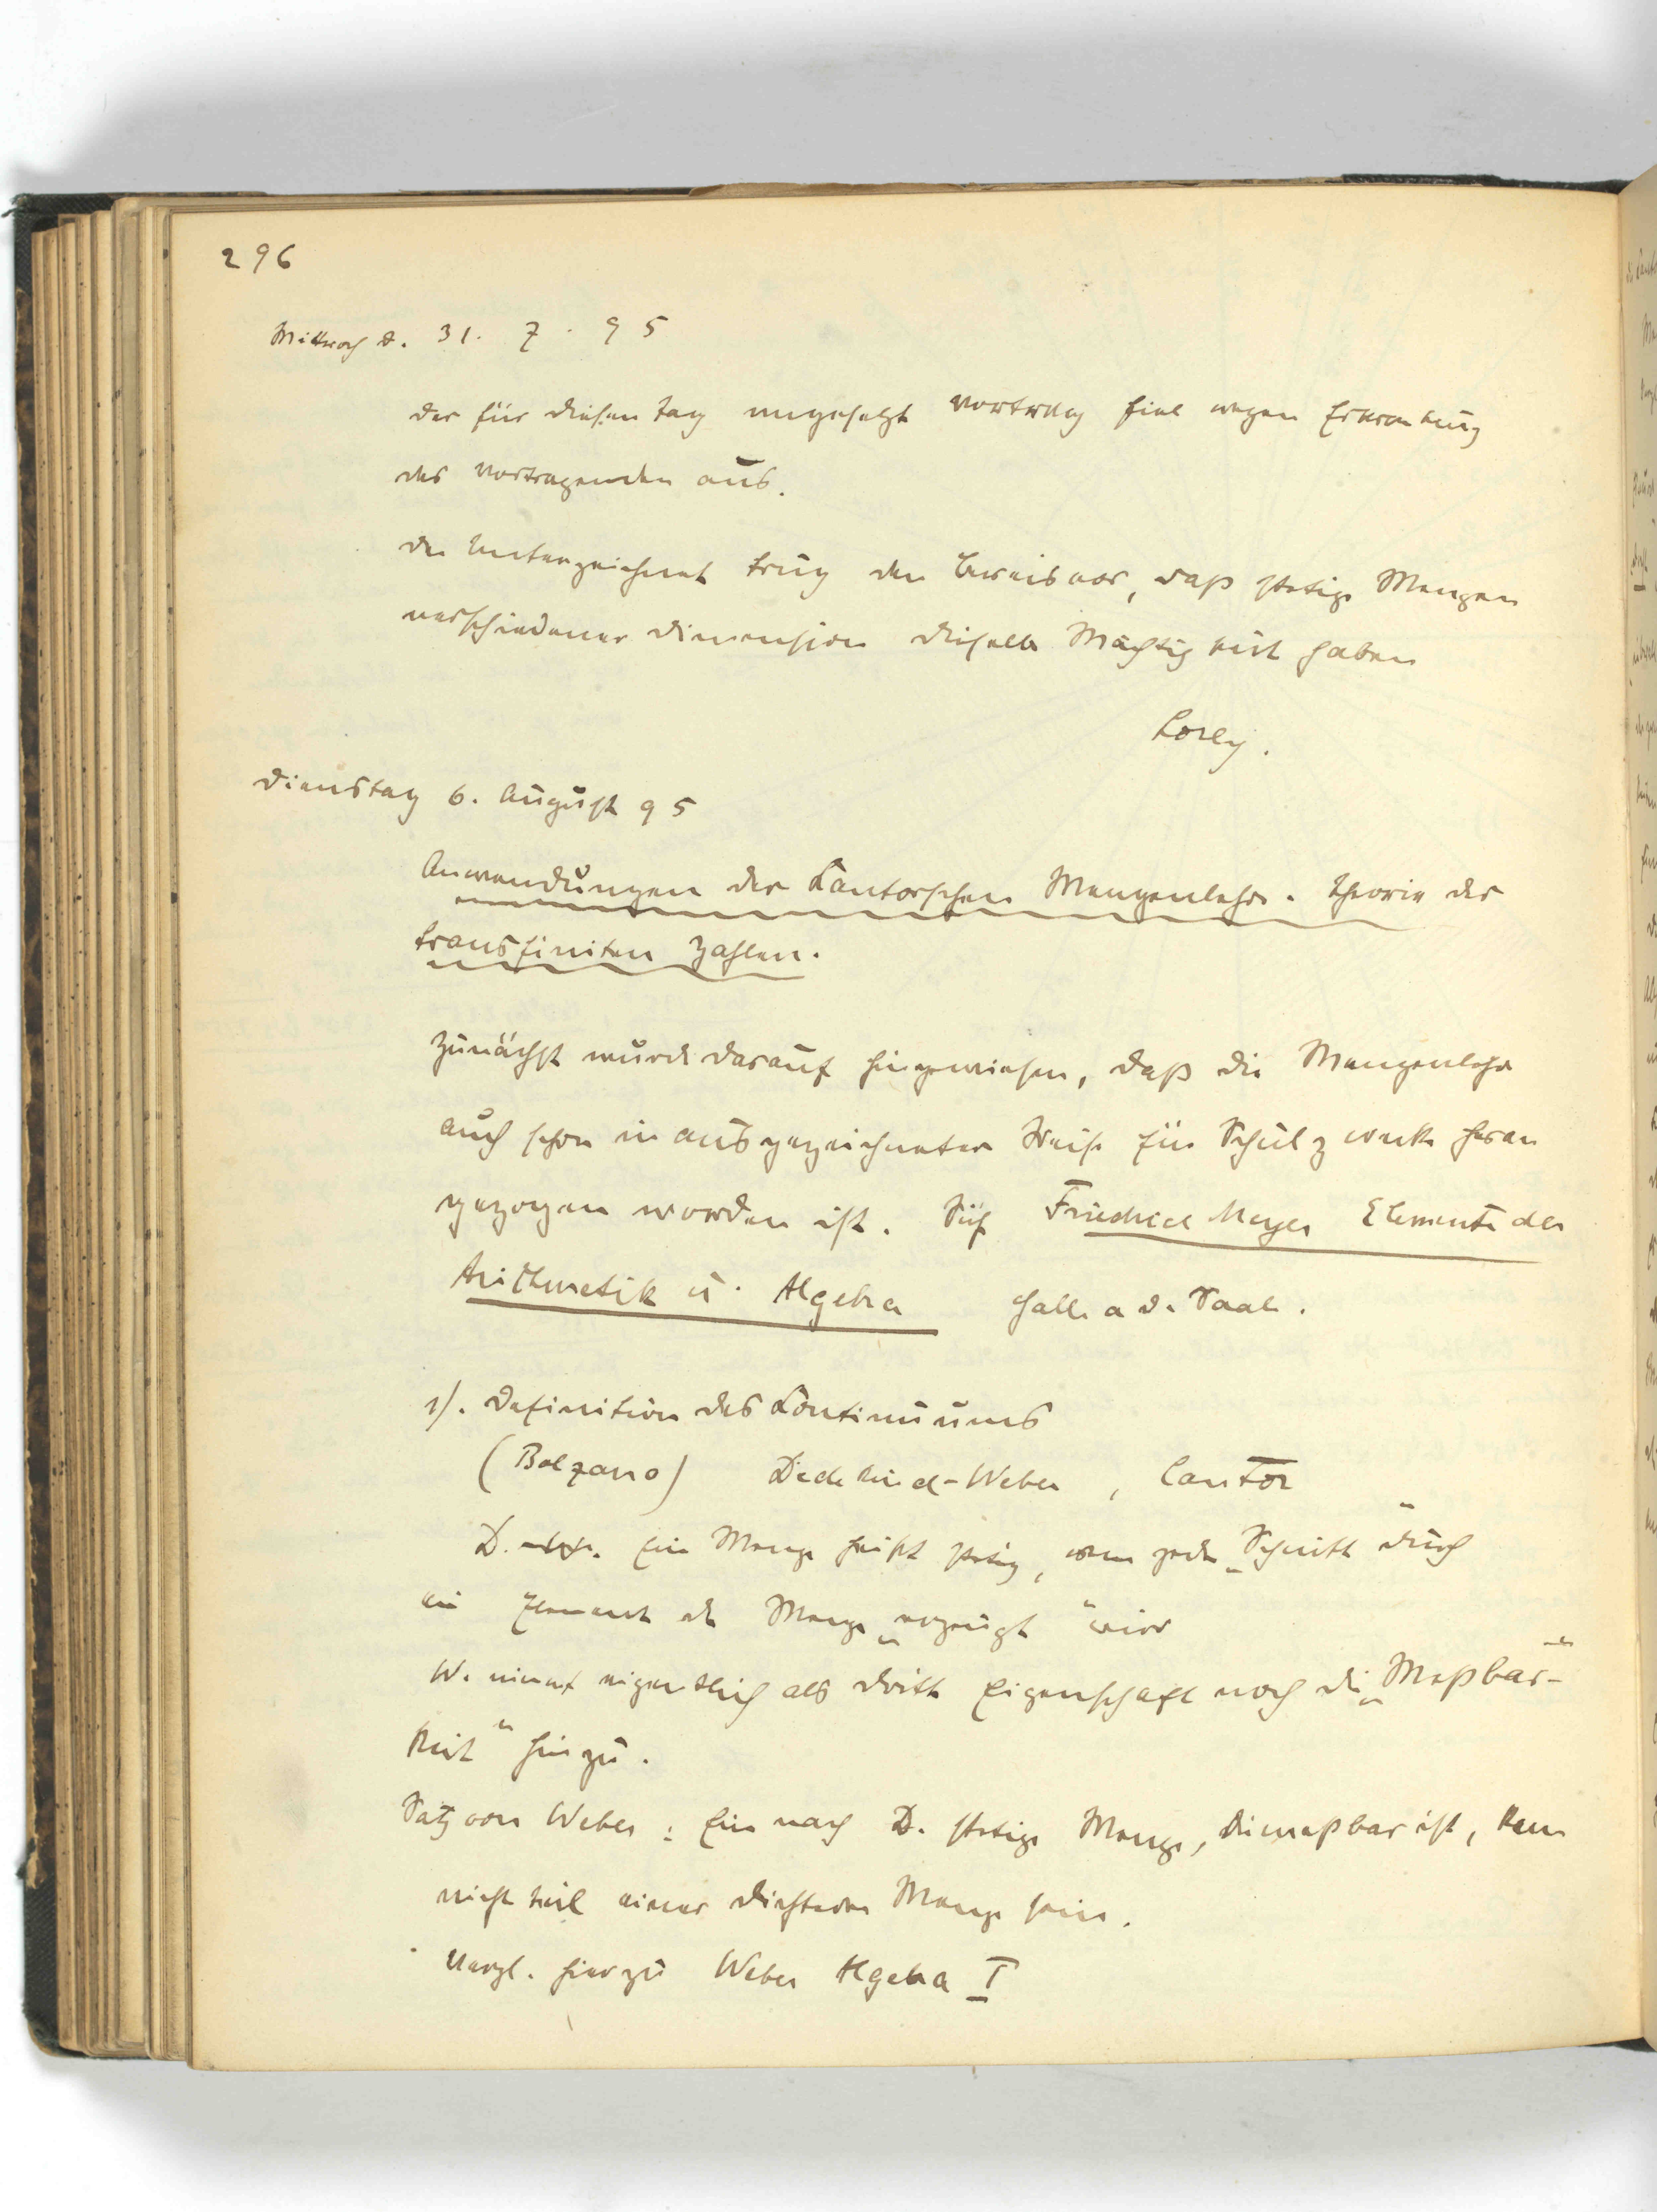 296
Mittwoch d. 31. 7. 95
Der für diesen Tag angesetzte Vortrag fiel wegen Erkrankung
des Vortragenden aus.
Der Unterzeichnete trug den Beweis vor, daß stetige Mengen
verschiedener Dimension dieselbe Mächtigkeit haben
Lorey.
Dienstag 6. August 95
Anwendungen der Cantorschen Mengenlehre. Theorie der
transfiniten Zahlen.
Zunächst wurde darauf hingewiesen, daß die Mengenlehre
auch schon in ausgezeichneter Weise für Schulzwecke heran
gezogen worden ist. Siehe Friedrich Meyer Elemente der
Arithmetik u. Algebra Halle a d. Saale.
1). Definition des Continuums
(Bolzano) Dedekind-Weber, Cantor
D. Eine Menge heißt stetig, wenn jeder „Schnitt" durch
ein Element der Menge „erzeugt" wird
W. nimmt eigentlich als dritte Eigenschaft noch die „Meßbar-
keit" hinzu.
Satz von Weber: Eine nach D. stetige Menge, die meßbar ist, kann
nicht Teil einer dichteren Menge sein.
Vergl. hierzu Weber Algebra I